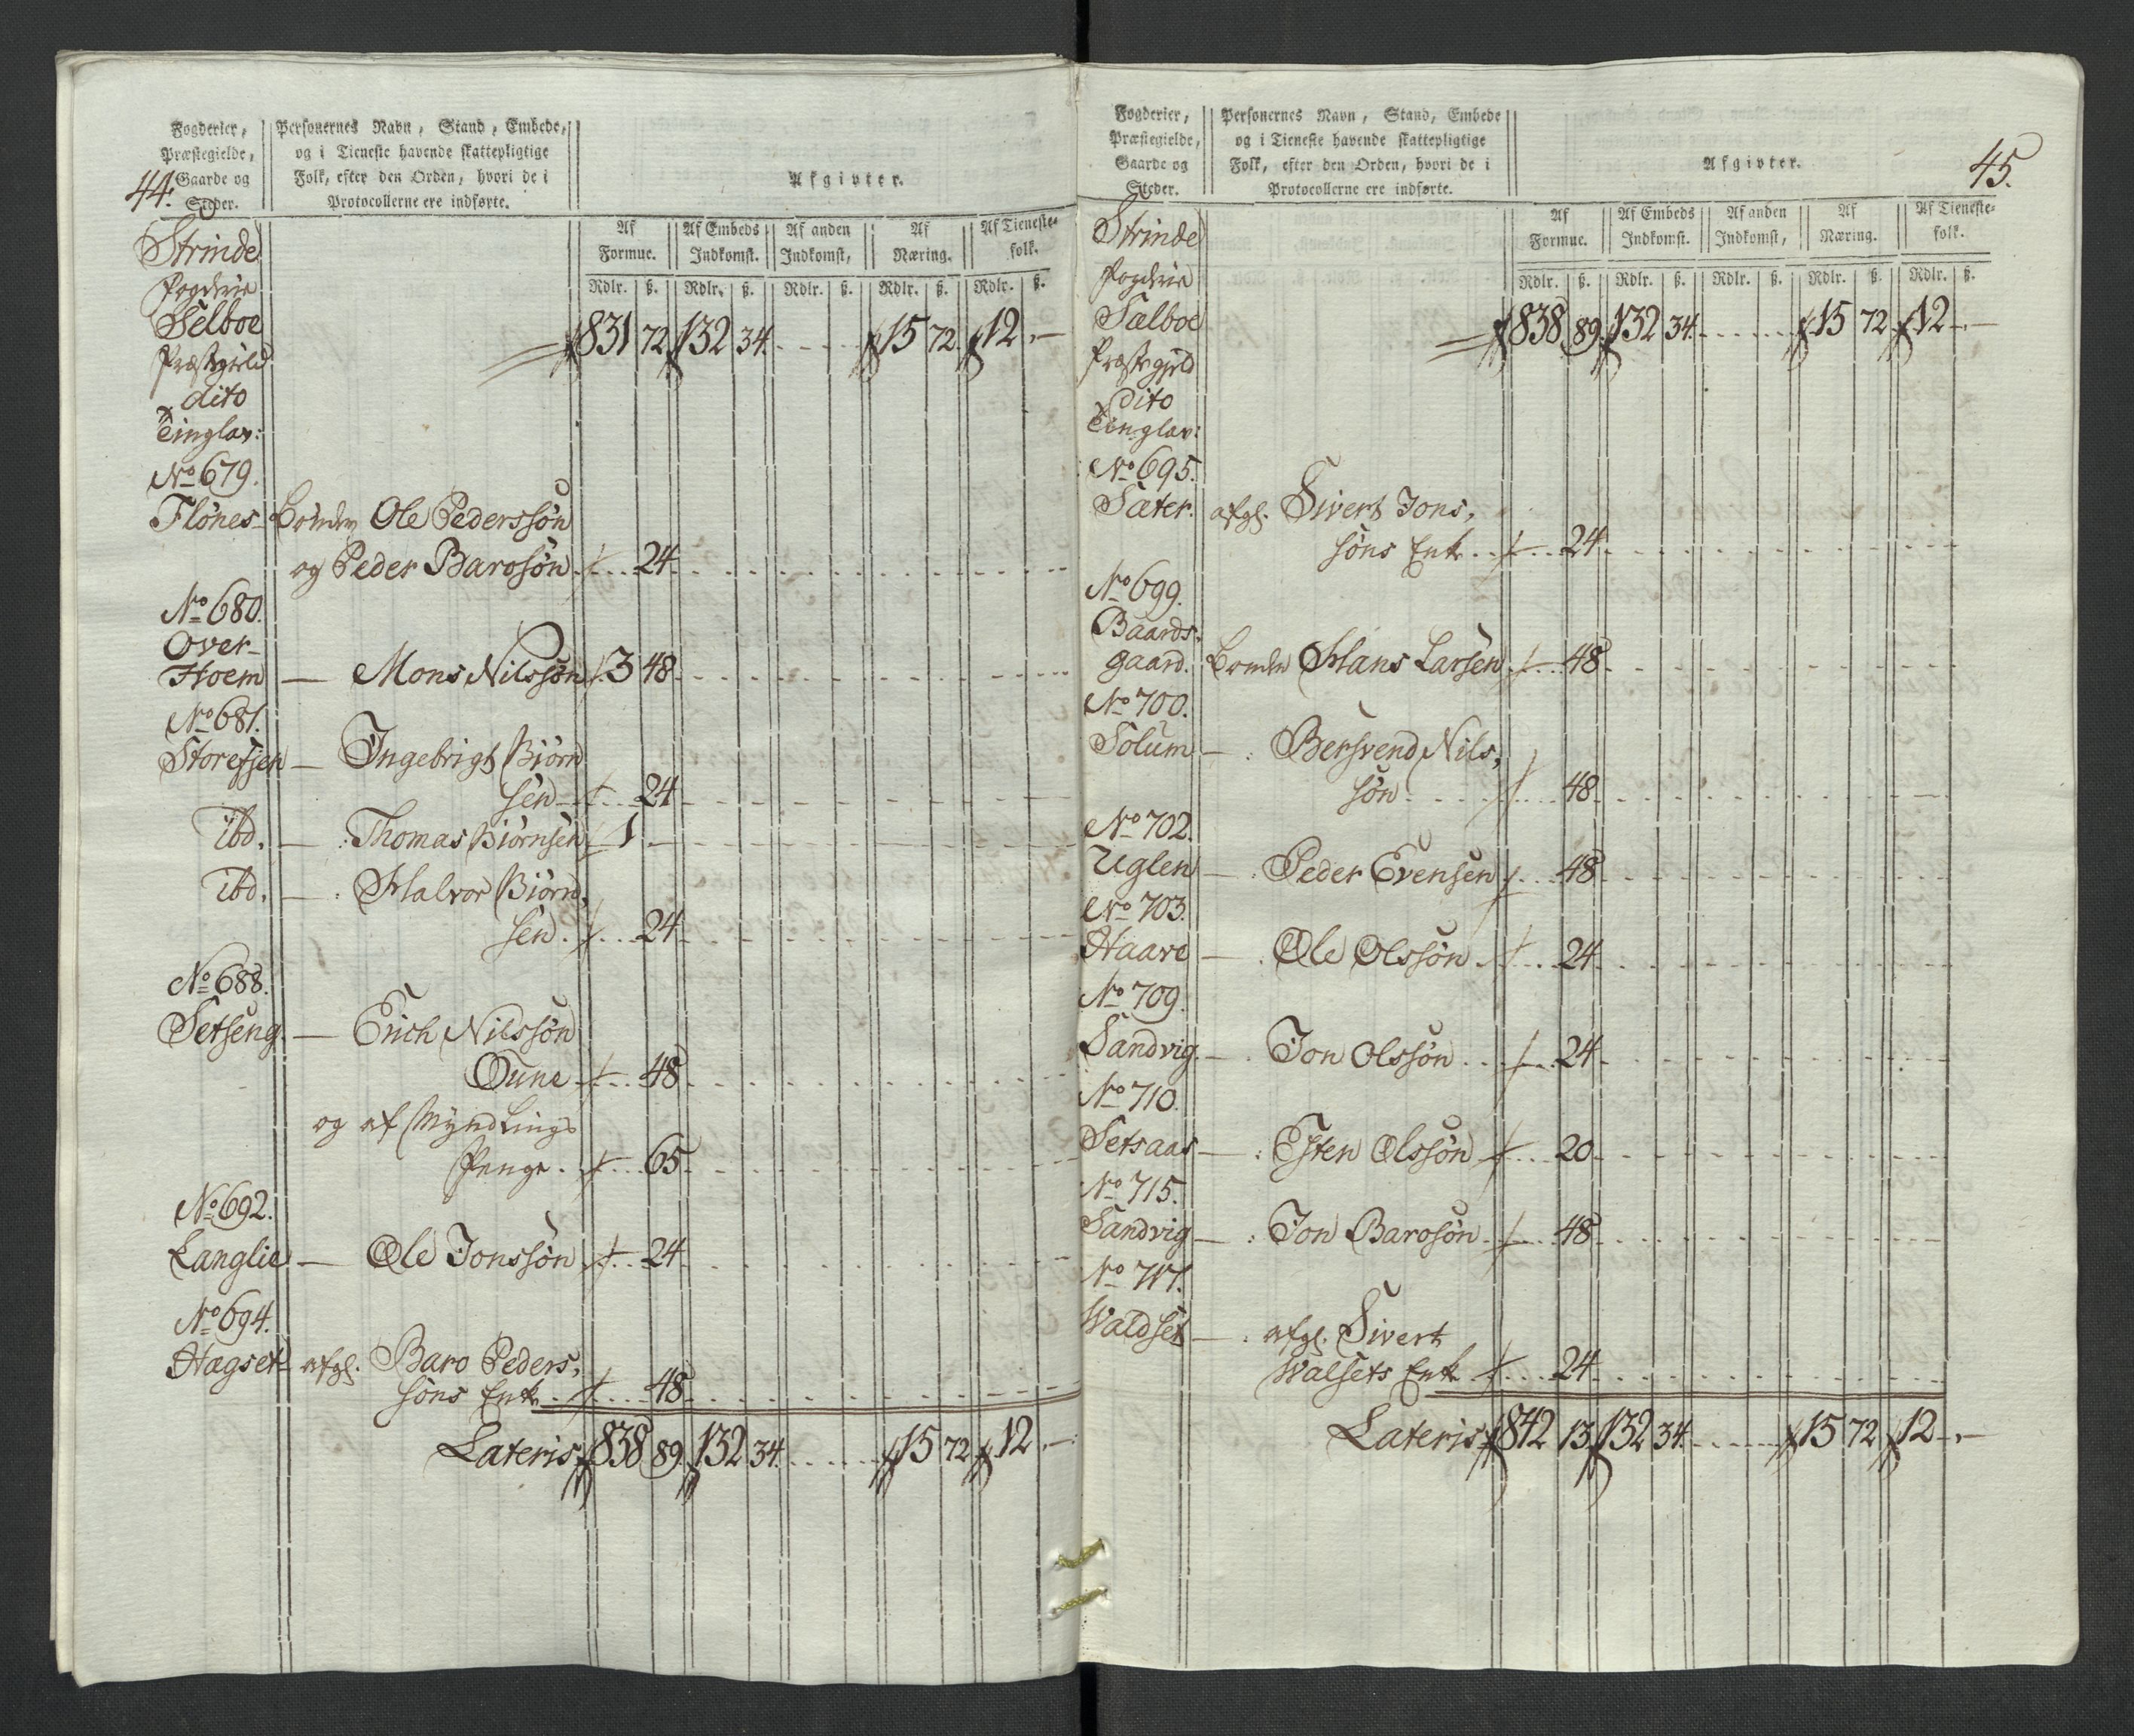 44.
Fogderier,
Præstegielde,
Gaarde og
Steder.
Personernes Navn, Stand, Embede,
og i Tieneste havende skattepligtige
Folk, efter den Orden, hvori de i
Protocollerne ere indførte.
Afgivter.
Af Formue. Af Embeds Indkomst. Af anden Indkomst, Af Næring. Af Tieneste-folk.
Rdlr. ß. Rdlr. ß. Rdlr. ß. Rdlr. ß. Rdlr. ß.
Strinde
Fogderie
Selboe 831 72 132 34 15 72 12 -
Præstegield
dito
Tinglav:
No 679.
Flönes Bonden Ole Pederssön
og Peder Barosön 24
No 680.
Over-
Hoem — Mons Nilssön 3 48
No 681.
Storefsen — Ingebrigt Biörn
sen 24
Ibd. — : Thomas Biörnsen 1 -
Ibd. — : Halvor Biörn,
sen 24
No 688.
Setseng. — Erich Nilssön
Oune 48
og af Myndlings
Penge 65
No 692.
Langlie — Ole Jonssön 24
No 694.
Hagset afgl. Baro Peders,
söns Enke 48
Lateris 838 89. 132 34. 15 72 12 -
45.
Fogderier,
Præstegielde,
Gaarde og
Steder.
Personernes Navn, Stand, Embede
og i Tieneste havende skattepligtige
Folk, efter den Orden, hvori de i
Protocollerne ere indførte.
Afgivter.
Af Formue. Af Embeds Indkomst. Af anden Indkomst, Af Næring. Af Tieneste-folk.
Rdlr. ß. Rdlr. ß. Rdlr. ß. Rdlr. ß. Rdlr. ß.
Strinde
Fogderie
Sælboe 838 89. 132 34. 15 72 12 -
Præstegield
dito
Tinglav:
No 695.
Sæter. afgl. Sivert Jons,
söns Enke 24
No 699.
Baards-
gaard. Bonden Hans Larsen 48
No 700.
Solum — : Bersvend Nils,
sön 48
No 702.
Uglen — : Peder Evensen 48
No 703.
Haave — . Ole Olssön 24
No 709.
Sandvig — . Jon Olssön 24
No 710.
Setsaas — : Esten Olssön 20
No 715.
Sandvig — : Jon Barosön 48
No 717.
Waldset — : afgl. Sivert
Walsets Enke 24
Lateris 842 13 132 34. 15 72 12 -